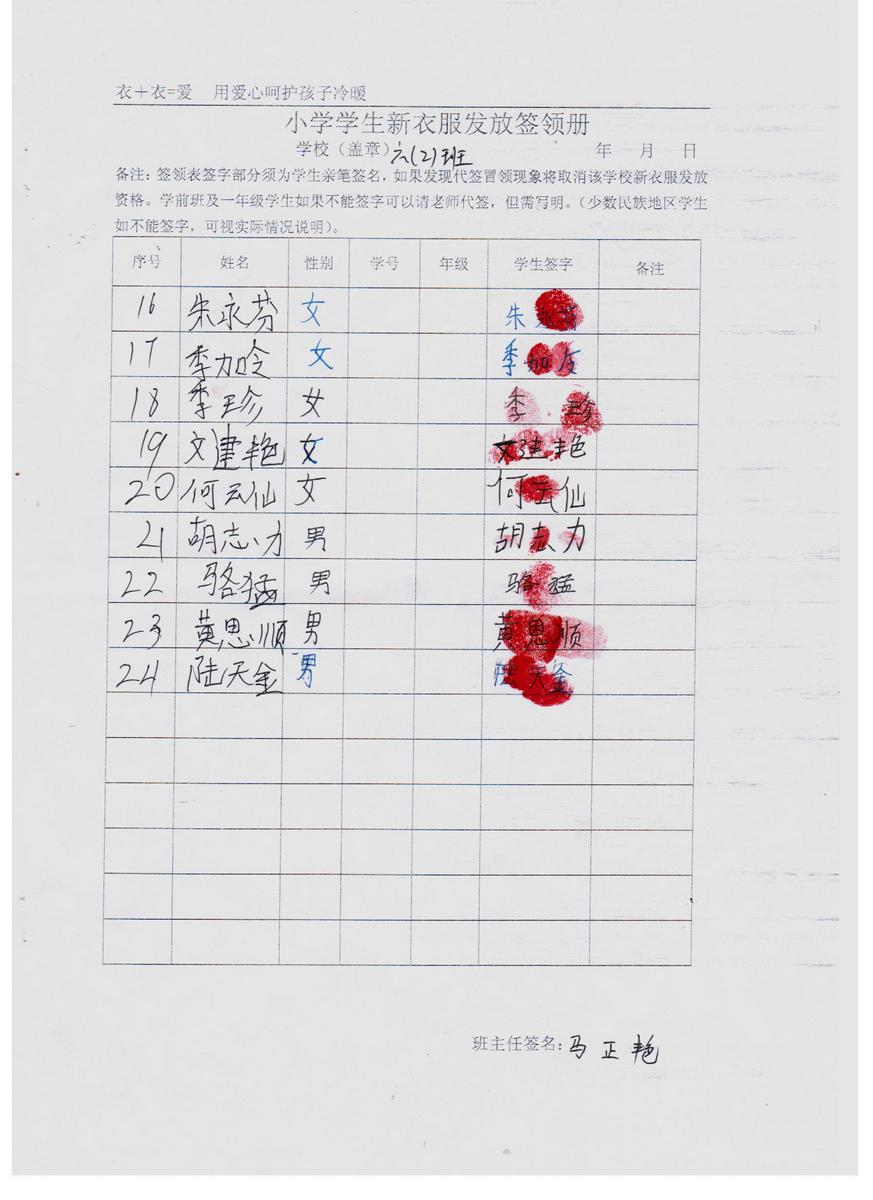 衣+衣=爱 用爱心呵护孩子冷暖
小学学生新衣服发放签领册
学校（盖章）六(2)班 年 月 日
备注：签领表签字部分须为学生亲笔签名，如果发现代签冒领现象将取消该学校新衣服发放
资格。学前班及一年级学生如果不能签字可以请老师代签，但需写明。（少数民族地区学生
如不能签字，可视实际情况说明）。
序号 姓名 性别 学号 年级 学生签字 备注
16 朱永芬 女 朱永芬
17 季加呤 女 季加
18 季珍 女 季珍
19 文建艳 女 文建艳
20 何云仙 女 何云仙
21 胡志力 男 胡志力
22 骆猛 男 骆猛
23 黄思顺 男 黄思顺
24 陆天金 男 陆天金
班主任签名：马正艳